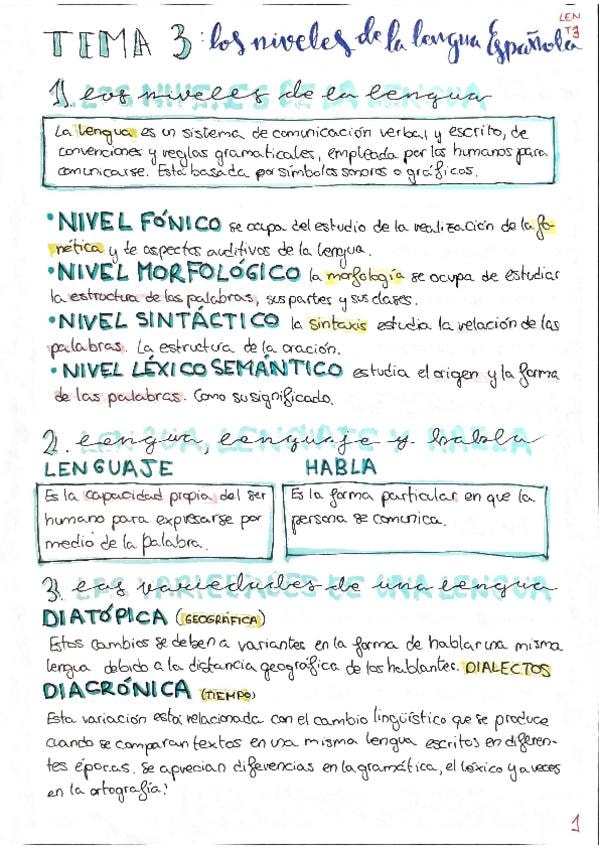 LEN
T3
TEMA 3: los niveles de la lengua Española
1). los niveles de la lengua
La lengua es un sistema de comunicación verbal y escrito, de
convenciones y reglas gramaticales, empleada por los humanos para
comunicarse. Está basada por símbolos sonoros o gráficos.
• NIVEL FÓNICO se ocupa del estudio de la realización de la fo-
nética y de aspectos auditivos de la lengua.
• NIVEL MORFOLÓGICO la morfología se ocupa de estudiar
la estructura de las palabras, sus partes y sus clases.
• NIVEL SINTÁCTICO la sintaxis estudia la relación de las
palabras. La estructura de la oración.
• NIVEL LÉXICO SEMÁNTICO estudia el origen y la forma
de las palabras. Como su significado.
2. lengua, lenguaje y habla
LENGUAJE HABLA
Es la capacidad propia del ser
humano para expresarse por
medio de la palabra.
Es la forma particular en que la
persona se comunica.
3. las variedades de una lengua
DIATÓPICA (GEOGRÁFICA)
Estos cambios se deben a variantes en la forma de hablar una misma
lengua debido a la distancia geográfica de los hablantes. DIALECTOS
DIACRÓNICA (TIEMPO)
Esta variación está relacionada con el cambio lingüístico que se produce
cuando se comparan textos en una misma lengua escritos en diferen-
tes épocas. Se aprecian diferencias en la gramática, el léxico y a veces
en la ortografía.
1